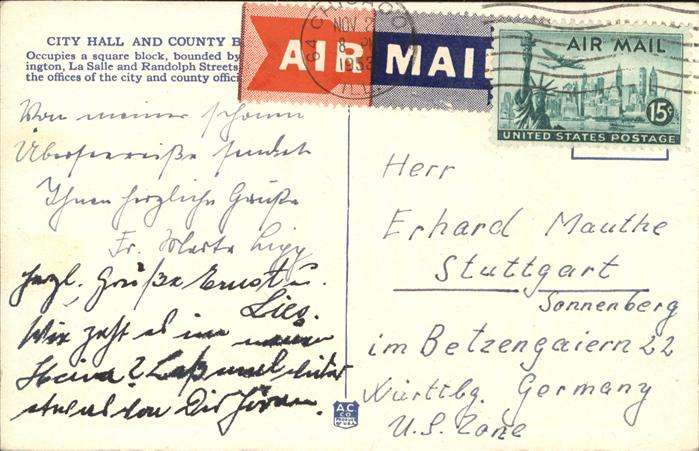 CITY HALL AND COUNTY B
Occupies a square block, bounded by
ington, La Salle and Randolph Streets
the offices of the city and county offic
AIR MAI
CHICAGO
NOV 2
8 PM
1953
ILL
AIR MAIL
15¢
UNITED STATES POSTAGE
Von meiner schönen
Überseereise sendet
Ihnen herzliche Grüße
Fr. Marta Lipp
herzl. Grüße Ernst u.
Lies.
Wie geht es im neuen
Heim? Laß mal
etwas von Dir hören.
Herr
Erhard Mauthe
Stuttgart
Sonnenberg
im Betzengaiern 22
Württbg. Germany
U.S. Zone
A.C.
CO